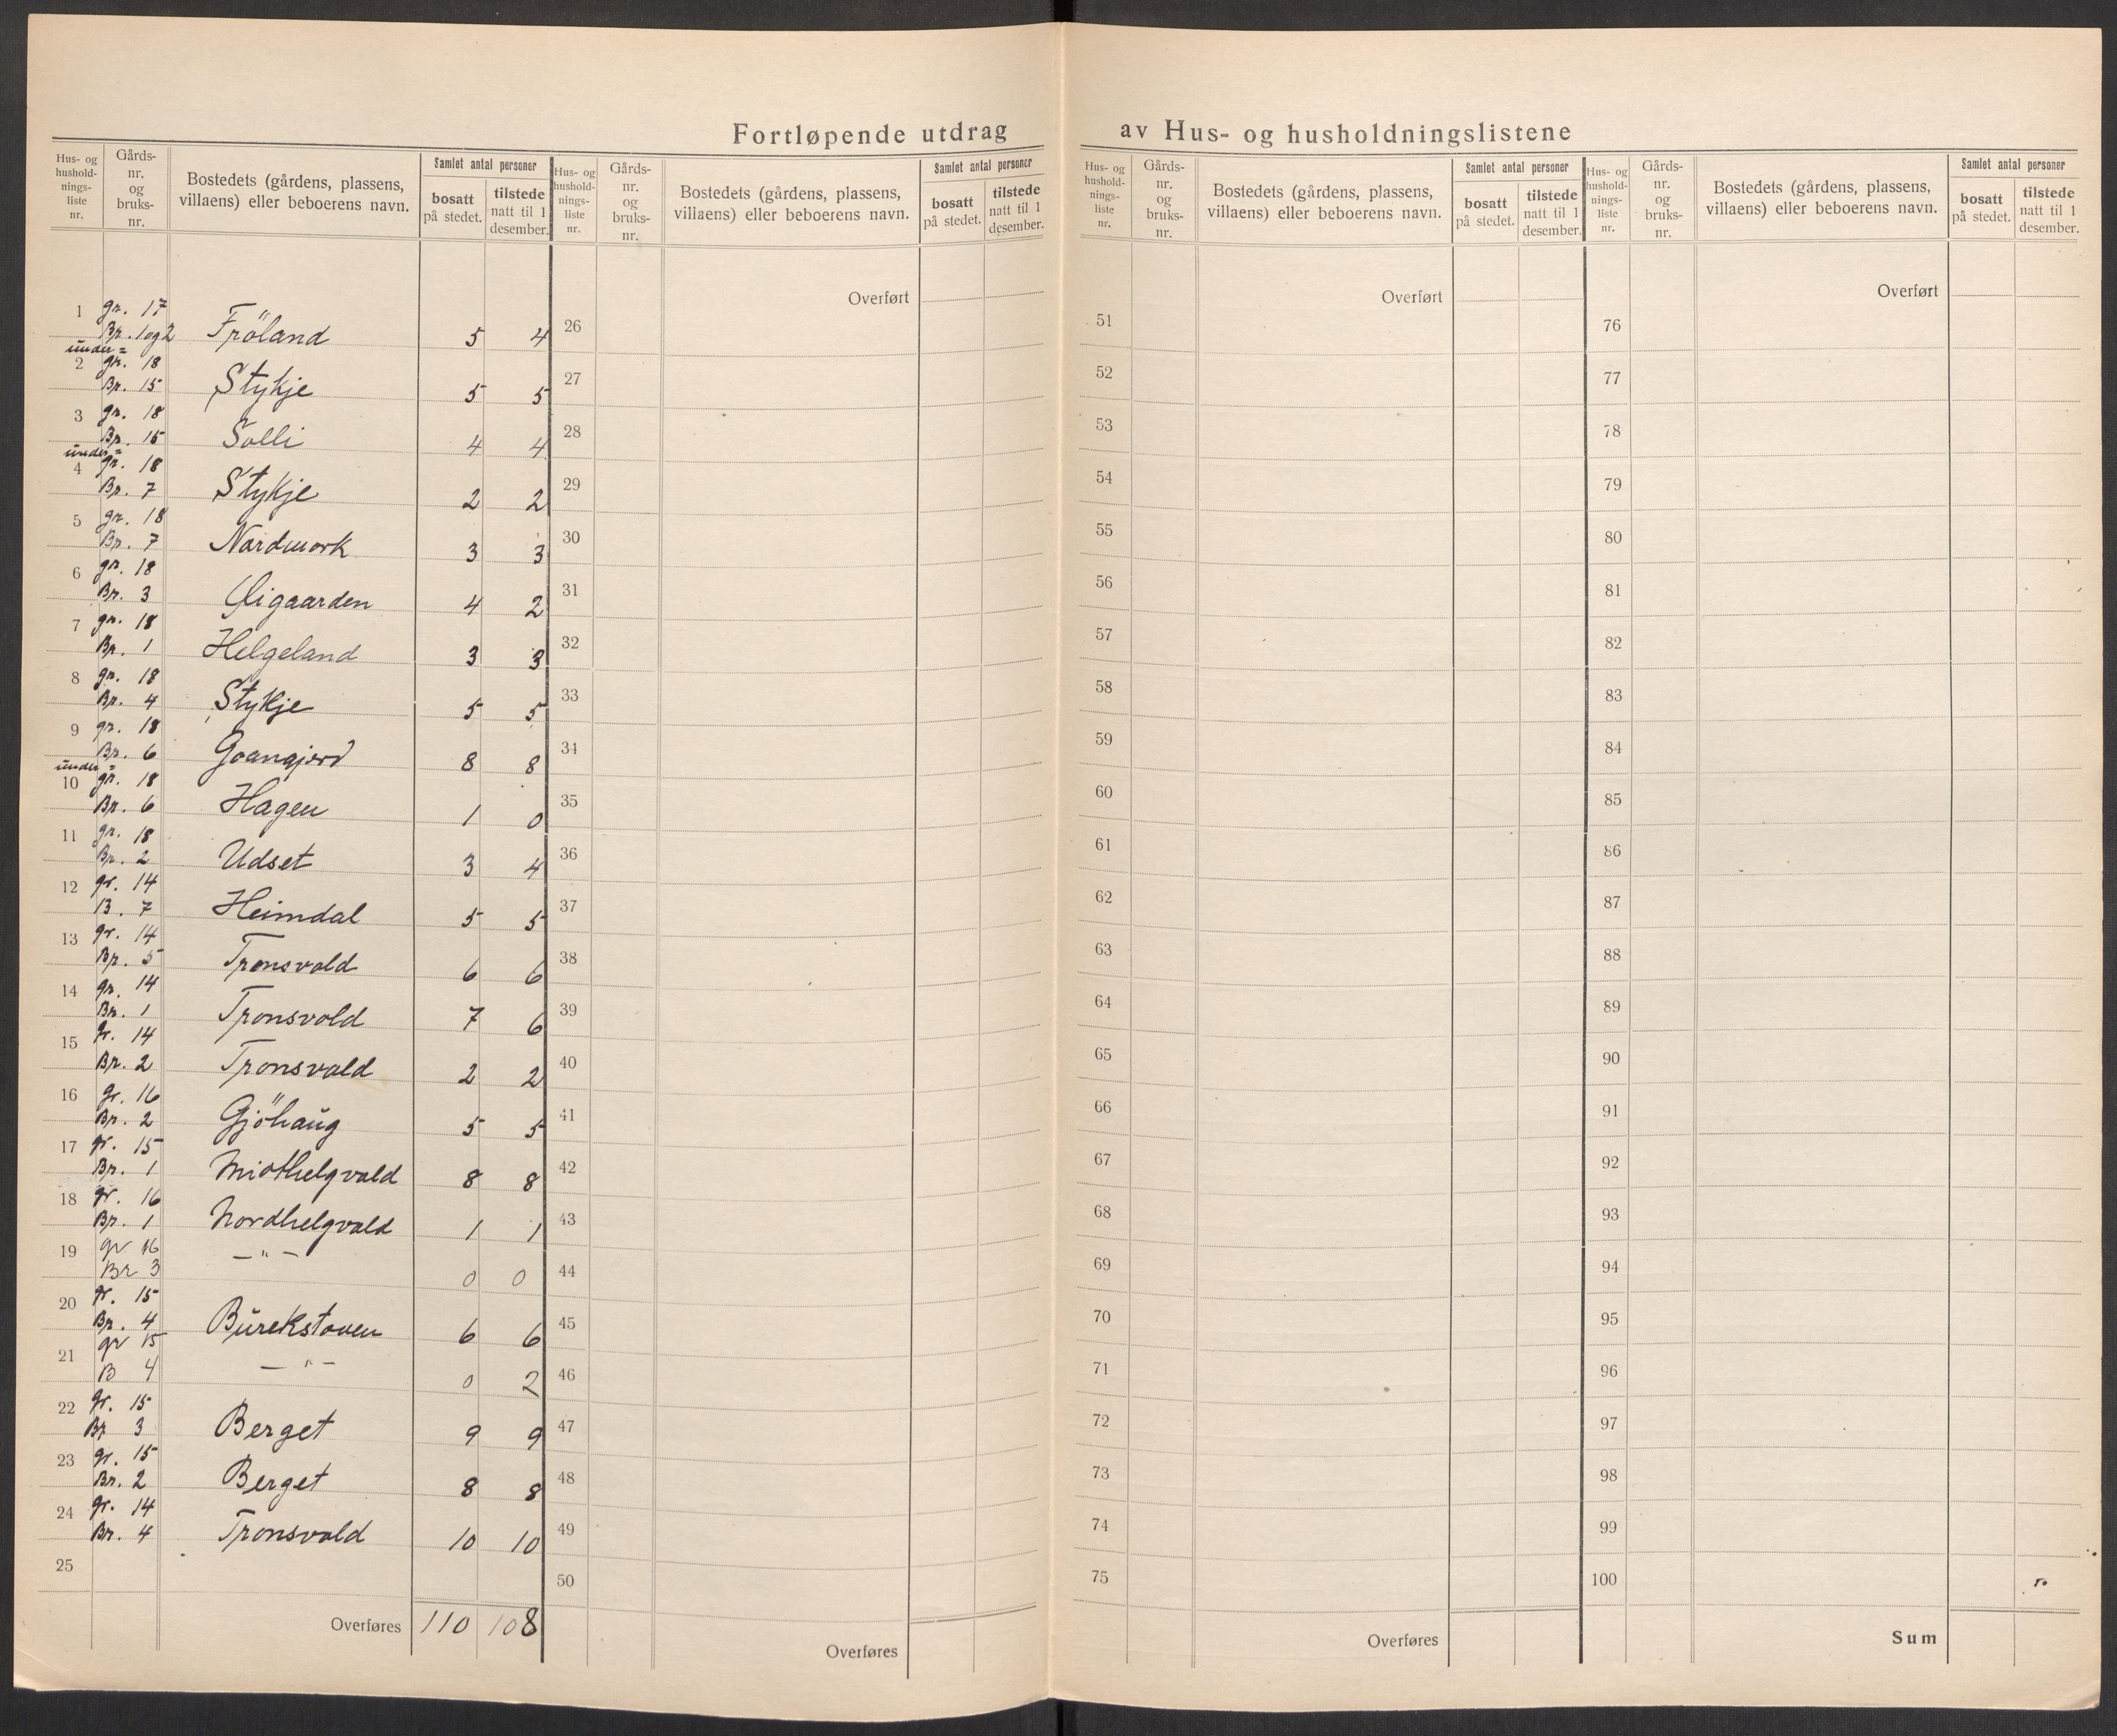 Fortløpende utdrag av Hus- og husholdningslistene
Hus- og hushold-nings-liste nr. Gårds-nr. og bruks-nr. Bostedets (gårdens, plassens, villaens) eller beboerens navn. Samlet antal personer bosatt på stedet. tilstede natt til 1 desember.
Hus- og hushold-nings-liste nr. Gårds-nr. og bruks-nr. Bostedets (gårdens, plassens, villaens) eller beboerens navn. Samlet antal personer bosatt på stedet. tilstede natt til 1 desember.
Hus- og hushold-nings-liste nr. Gårds-nr. og bruks-nr. Bostedets (gårdens, plassens, villaens) eller beboerens navn. Samlet antal personer bosatt på stedet. tilstede natt til 1 desember.
Hus- og hushold-nings-liste nr. Gårds-nr. og bruks-nr. Bostedets (gårdens, plassens, villaens) eller beboerens navn. Samlet antal personer bosatt på stedet. tilstede natt til 1 desember.
1 gr. 17 Br. 1 og 2 Fröland 5 4
2 under= gr. 18 Br. 15 Stykje 5 5
3 gr. 18 Br. 15 Solli 4 4
4 under= gr. 18 Br. 7 Stykje 2 2
5 gr. 18 Br. 7 Nordmork 3 3
6 gr. 18 Br. 3 Øigaarden 4 2
7 gr. 18 Br. 1 Helgeland 3 3
8 gr. 18 Br. 4 Stykje 5 5
9 gr. 18 Br. 6 8 8
10 under= gr. 18 Br. 6 Hagen 1 0
11 gr. 18 Br. 2 Udset 3 4
12 gr. 14 B. 7 Heimdal 5 5
13 gr. 14 Br. 5 Tronsvold 6 6
14 gr. 14 Br. 1 Tronsvold 7 6
15 gr. 14 Br. 2 Tronsvold 2 2
16 gr. 16 Br. 2 Gjöhaug 5 5
17 gr. 15 Br. 1 Midthelgvold 8 8
18 gr. 16 Br. 1 Nordhelgvold 1 1
19 gr 16 Br 3 — " — 0 0
20 gr. 15 Br. 4 Burekstouen 6 6
21 gr 15 B 4 — " — 0 2
22 gr. 15 Br 3 Berget 9 9
23 gr. 15 Br. 2 Berget 8 8
24 gr. 14 Br. 4 Tronsvold 10 10
25
Overføres 110 108
Overført
26
27
28
29
30
31
32
33
34
35
36
37
38
39
40
41
42
43
44
45
46
47
48
49
50
Overføres
Overført
51
52
53
54
55
56
57
58
59
60
61
62
63
64
65
66
67
68
69
70
71
72
73
74
75
Overføres
Overført
76
77
78
79
80
81
82
83
84
85
86
87
88
89
90
91
92
93
94
95
96
97
98
99
100
Sum